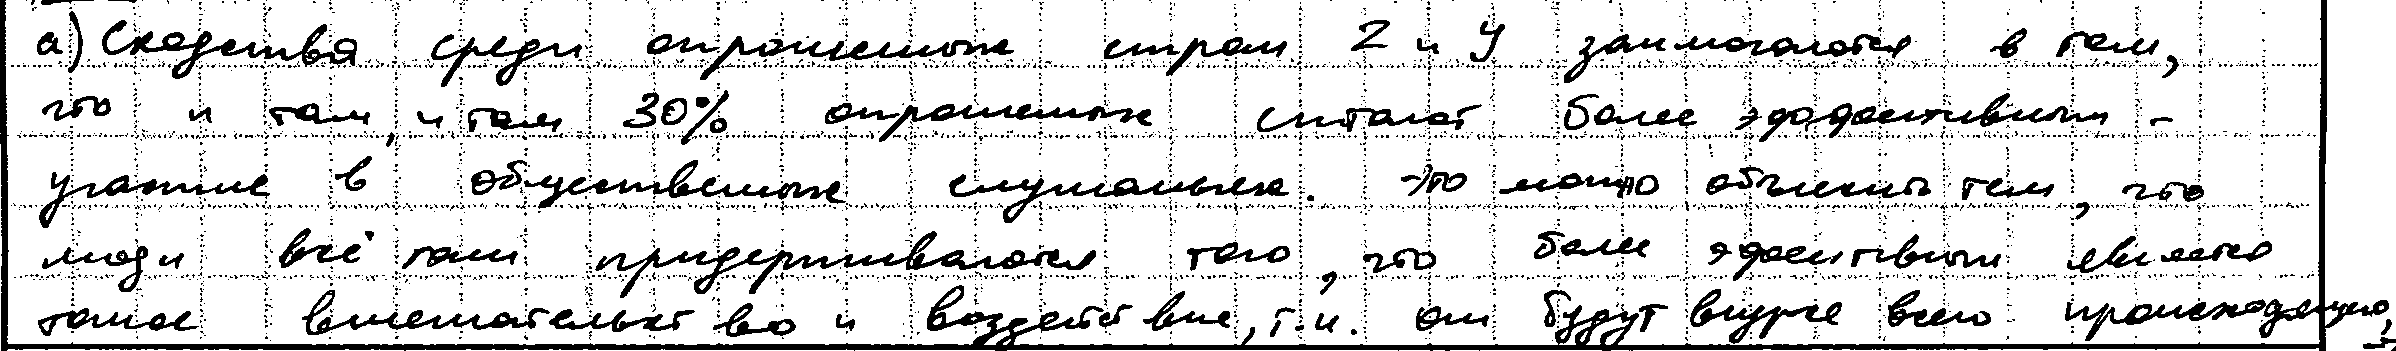 а) Сходства среди опрошенных стран Z и У заключаются в том,
что и там, и там 30% опрошенных считают более эффективным -
участие в общественных слушаньях. Это можно объяснить тем, что
люди всё таки придерживаются того, что более эффективным является
такое вмешательство и воздействие, т.к. они будут вкурсе всего происходящего,